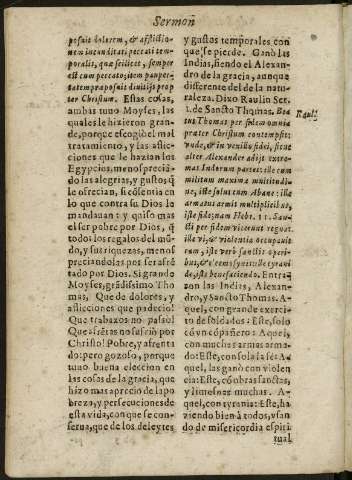 Sermon
posuit dolorem, & afflictio-
nem iucunditati peccati tem-
poralis, quæ scilicet, semper
est cum peccato; item pauper-
tatem præposuit diuitijs prop
ter Christum. Estas cosas,
ambas tuuo Moyses, las
quales le hizieron gran-
de, porque escogio el mal
tratamiento, y las aflic-
ciones que le hazian los
Egypcios, menosprecià-
do las alegrias, y gustos q̃
le ofrecian, si cõsentia en
lo que contra su Dios le
mandauan: y quiso mas
el ser pobre por Dios, q̃
todos los regalos del mũ-
do, y sus riquezas, menos
preciandolas por ser afrẽ
tado por Dios. Si grande
Moyses, grãdissimo Tho
mas. Que de dolores, y
aflicciones que padecio!
Que trabaxos no passó!
Que afrẽtas no sufrió por
Christo! Pobre, y afrenta
do: pero gozoso, porque
tuuo buena eleccion en
las cosas de la gracia, que
hizo mas aprecio de la po
breza, y persecuciones de
esta vida, con que se con-
serua, que de los deleytes
y gustos temporales con
que se pierde. Ganò las
Indias, siendo el Alexan-
dro de la gracia, aunque
differente del de la natu-
raleza. Dixo Raulin Ser.
1. de Sancto Thomas. Bea
tus Thomas per solem omnia
præter Christum contempsit:
nude, & in vexillo fidei, sicut
alter Alexander adijt extre-
mas Indorum partes: ille cum
militum maxima multitudi-
ne, iste solus cum Abane: ille
armatus armis multiplicibus,
iste fide; nam Hebr. 11. San-
cti per fidem vicerunt regna:
ille vi, & violentia occupauit
eum, iste verò sanctis operi-
bus, & eleemosynis: ille tyrani
de, iste benefaciendo. Entra-
ron las Indias, Alexan-
dro, y Sancto Thomas. A-
quel, con grande exerci-
to de soldados: Este, solo
cõ vn cõpañero: Aquel,
con muchas armas arma-
do: Este, con sola la fee: A-
quel, las ganò con violen
cia: Este, cõ obras sanctas,
y limosnas muchas. A-
quel, con tyrania: Este, ha-
ziendo bien à todos, vsan
do de misericordia espiri
tual
Raul.